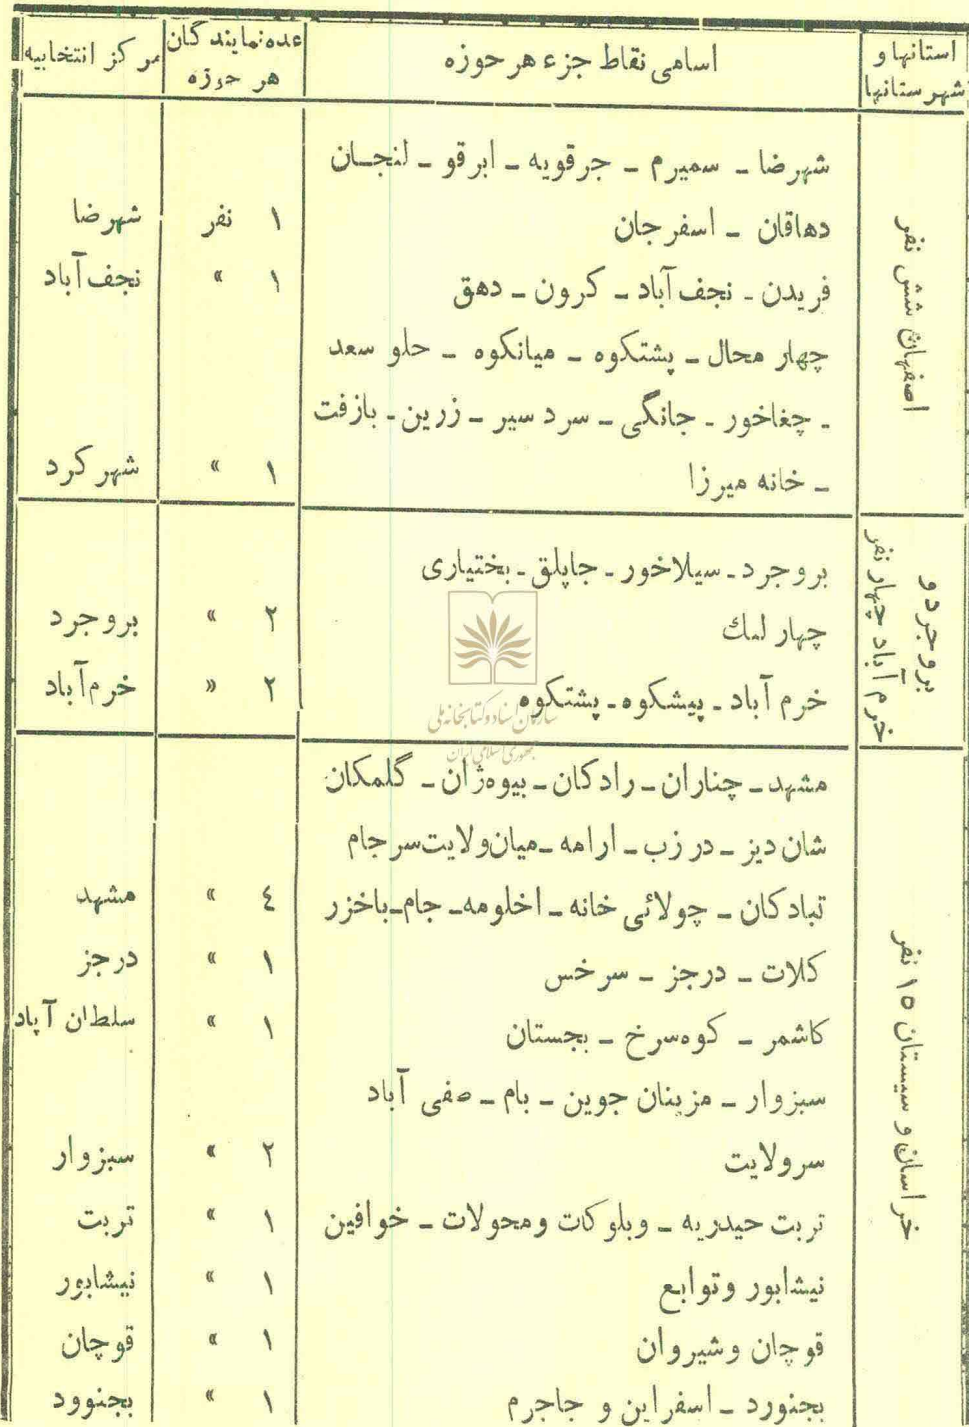 استانها و شهرستانها | اسامی نقاط جزء هر حوزه | عده نمایندگان هر حوزه | مرکز انتخابیه
اصفهان شش نفر
شهرضا ـ سمیرم ـ جرقویه ـ ابرقو ـ لنجـان
دهاقان ـ اسفرجان | ۱ نفر | شهرضا
فریدن ـ نجف آباد ـ کرون ـ دهق | ۱ » | نجف آباد
چهار محال ـ پشتکوه ـ میانکوه ـ حلو سعد
ـ چغاخور ـ جانگی ـ سرد سیر ـ زرین ـ بازفت
ـ خانه میرزا | ۱ » | شهر کرد
بروجرد و خرم آباد چهار نفر
بروجرد ـ سیلاخور ـ جاپلق ـ بختیاری
چهار لنك | ۲ » | بروجرد
خرم آباد ـ پیشکوه ـ پشتکوه | ۲ » | خرم آباد
سازمان اسناد و کتابخانه ملی
جمهوری اسلامی ایران
خراسان و سیستان ۱۵ نفر
مشهد ـ چناران ـ رادکان ـ بیوه‌ژان ـ گلمکان
شان دیز ـ در زب ـ ارامه ـ میان‌ولایت سرجام
تبادکان ـ چولائی خانه ـ اخلومه ـ جام ـ باخزر | ٤ » | مشهد
کلات ـ درجز ـ سرخس | ۱ » | درجز
کاشمر ـ کوه‌سرخ ـ بجستان | ۱ » | سلطان آباد
سبزوار ـ مزینان جوین ـ بام ـ صفی آباد
سرولایت | ۲ » | سبزوار
تربت حیدریه ـ وبلوکات ومحولات ـ خوافین | ۱ » | تربت
نیشابور وتوابع | ۱ » | نیشابور
قوچان وشیروان | ۱ » | قوچان
بجنورد ـ اسفراین و جاجرم | ۱ » | بجنوود